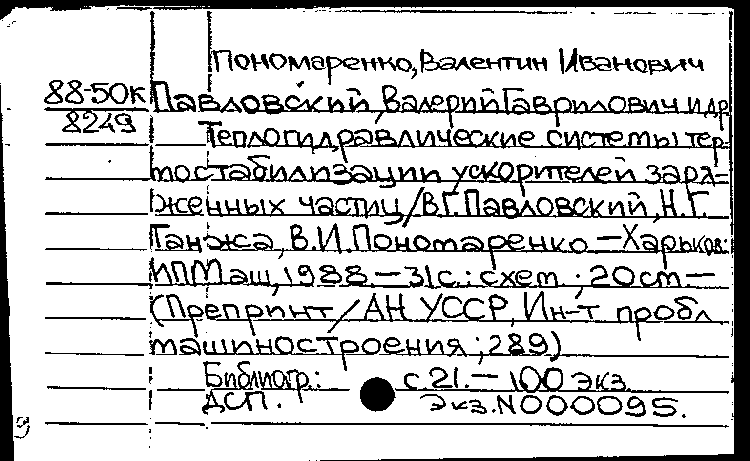 Пономаренко, Валентин Иванович
88-50к Павловский, Валерий Гаврилович и др
8249 Теплогидравлические системы тер-
мостабилизации ускорителей заря=
женных частиц/В.Г.Павловский, Н.Г.
Ганжа, В.И.Пономаренко.—Харьков:
ИПМаш, 1988.—31с.: схем.; 20см.—
(Препринт/АН УССР, Ин-т пробл
машиностроения; 289)
Библиогр.: с 21.—100 экз.
ДСП. Экз.N000095.
9